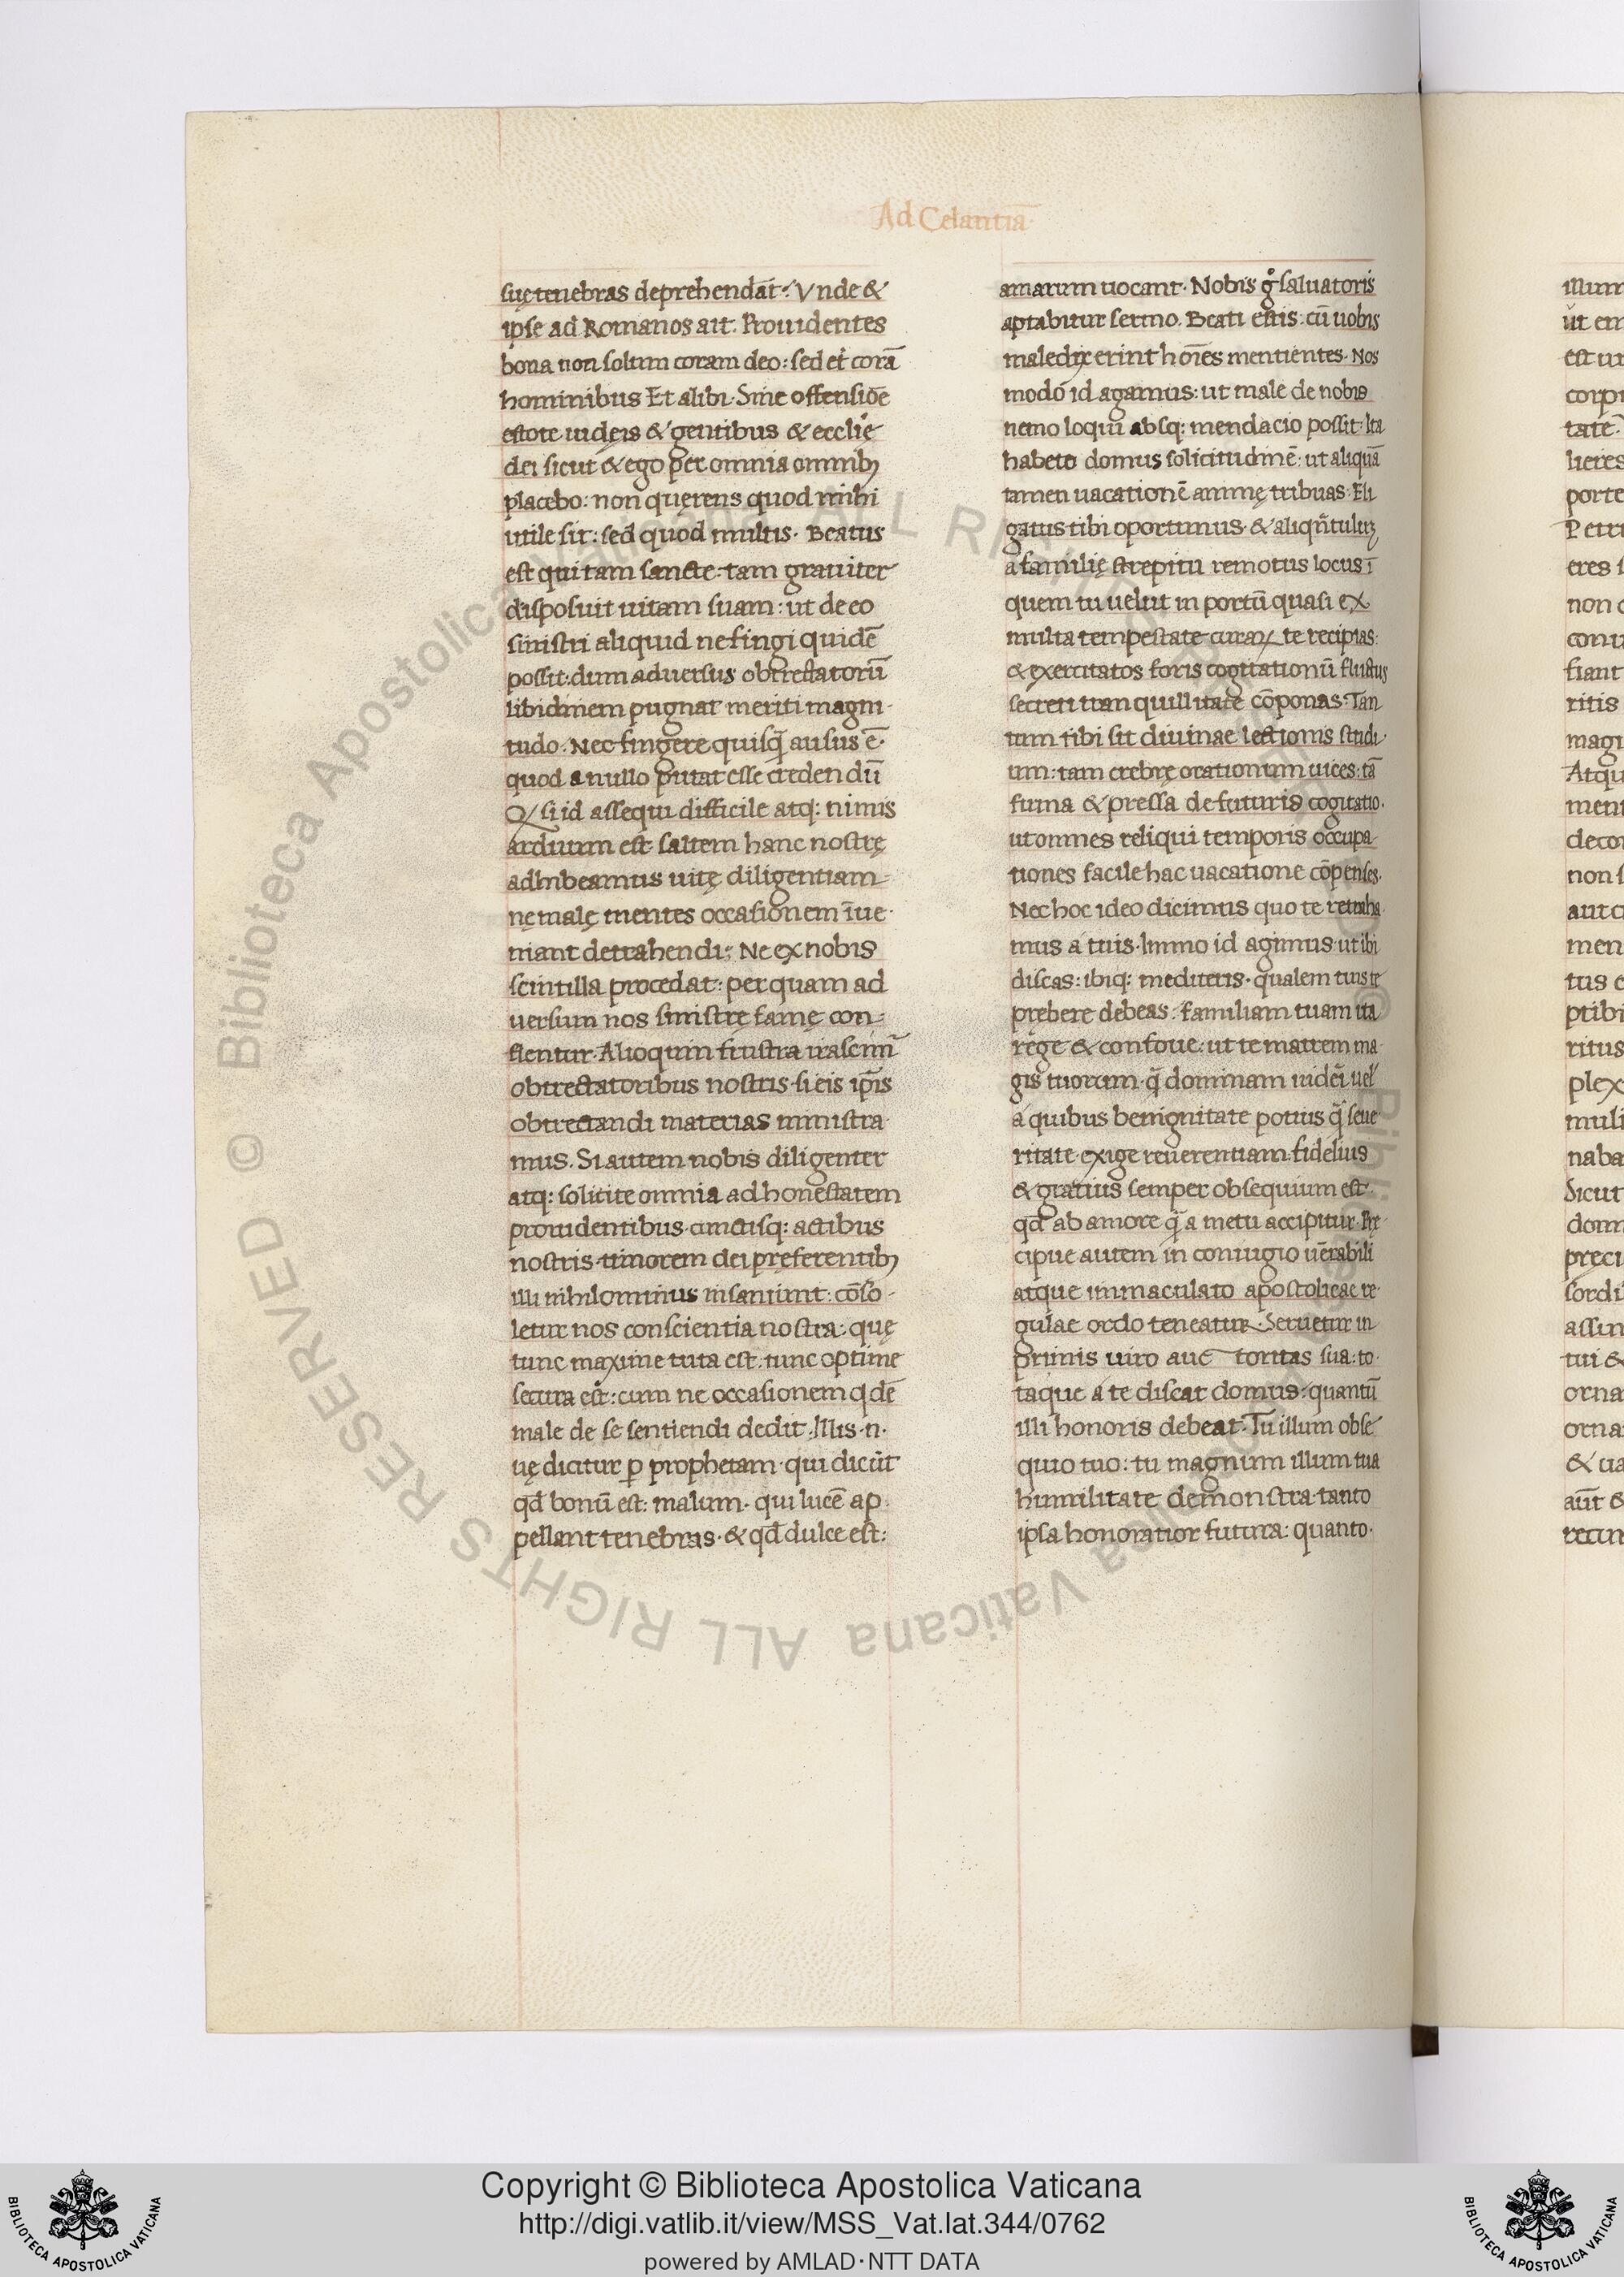 Ad Celantiā
suę tenebras deprehendāt. Vnde &
ipse ad Romanos ait. Prouidentes
bona non solum coram deo: sed et corā
hominibus Et alibi. Sine offensiōe
estote iudęis & gentibus & ecclię
dei sicut & ego per omnia omnibꝫ
placebo: non quęrens quod mihi
utile sit: sed quod multis. Beatus
est qui tam sancte. tam grauiter
disposuit uitam suam: ut de eo
sinistri aliquid ne fingi quidē
possit: dum aduersus obtrectatorū
libidinem pugnat meriti magni
tudo. Nec fingere quisq̄ ausus ē.
quod a nullo putat esse credendū
Qꝫ si id assequi difficile atq: nimis
arduum est. saltem hanc nostrę
adhibeamus uitę diligentiam
nę malę mentes occasionem īue
niant detrahendi: Ne ex nobis
scintilla procedat: per quam ad
uersum nos sinistrę famę con
flentur. Alioquin frustra irascim̄
obtrectatoribus nostris. si eis ip̄is
obtrectandi materias ministra
mus. Si autem nobis diligenter
atq: solicite omnia ad honestatem
prouidentibus. cunctisq: actibus
nostris timorem dei pręferentibꝫ
illi nihilominus insaniunt: cōso
letur nos conscientia nostra: quę
tunc maxime tuta est. tunc optime
secura est: cum ne occasionem q dē
male de se sentiendi dedit. Illis .n.
uę dicitur ꝑ prophetam. qui dicūt
qd̄ bonū est: malum. qui lucē ap
pellant tenebras. & qd̄ dulce est:
amarum uocant. Nobis gͦ saluatoris
aptabitur sermo. Beati estis: cū uobis
maledixerint hoīes mentientes. Nos
modo id agamus: ut male de nobis
nemo loqui absq: mendacio possit. Ita
habeto domus solicitudinē: ut aliquā
tamen uacationē animę tribuas. Eli
gatus tibi oportunus. & aliqn̄tulūꝫ
a familię strepitu remotus locus ī
quem tu uelut in portū quasi ex
multa tempestate curaꝝ te recipias:
& exercitatos foris cogitationū fluctus
secreti tranquillitate cōponas. Tan
tum tibi sit diuinae lectionis studi
um: tam crebrę orationum uices: tā
firma & pressa de futuris cogitatio.
ut omnes reliqui temporis occupa
tiones facile hac uacatione cōpenses.
Nec hoc ideo dicimus quo te retraha
mus a tuis. Immo id agimus ut ibi
discas: ibiq: mediteris. qualem tuis te
prębere debeas: familiam tuam ita
rege & confoue: ut te matrem ma
gis tuorum. q̄ dominam uideri uel
a quibus benignitate potius q̄ seue
ritate exige reuerentiam. fidelius
& gratius semper obsequium est
qd̄ ab amore q̄ a metu accipitur. Prę
cipue autem in coniugio uēnerabili
atque immaculato apostolicae re
gulae ordo teneatur. Seruetur in
primis uiro auc toritas sua: to
taque a te discat domus: quantū
illi honoris debeat. Tu illum obse
quio tuo: tu magnum illum tua
humilitate demonstra. tanto
ipsa honoratior futura: quanto.
Copyright © Biblioteca Apostolica Vaticana
http://digi.vatlib.it/view/MSS_Vat.lat.344/0762
powered by AMLAD·NTT DATA